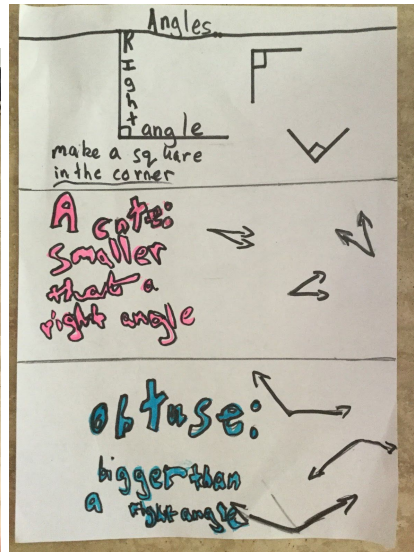 Angles..
Right
angle
make a square
in the corner
Acute:
smaller
that a
right angle
obtuse:
bigger than
a right angle